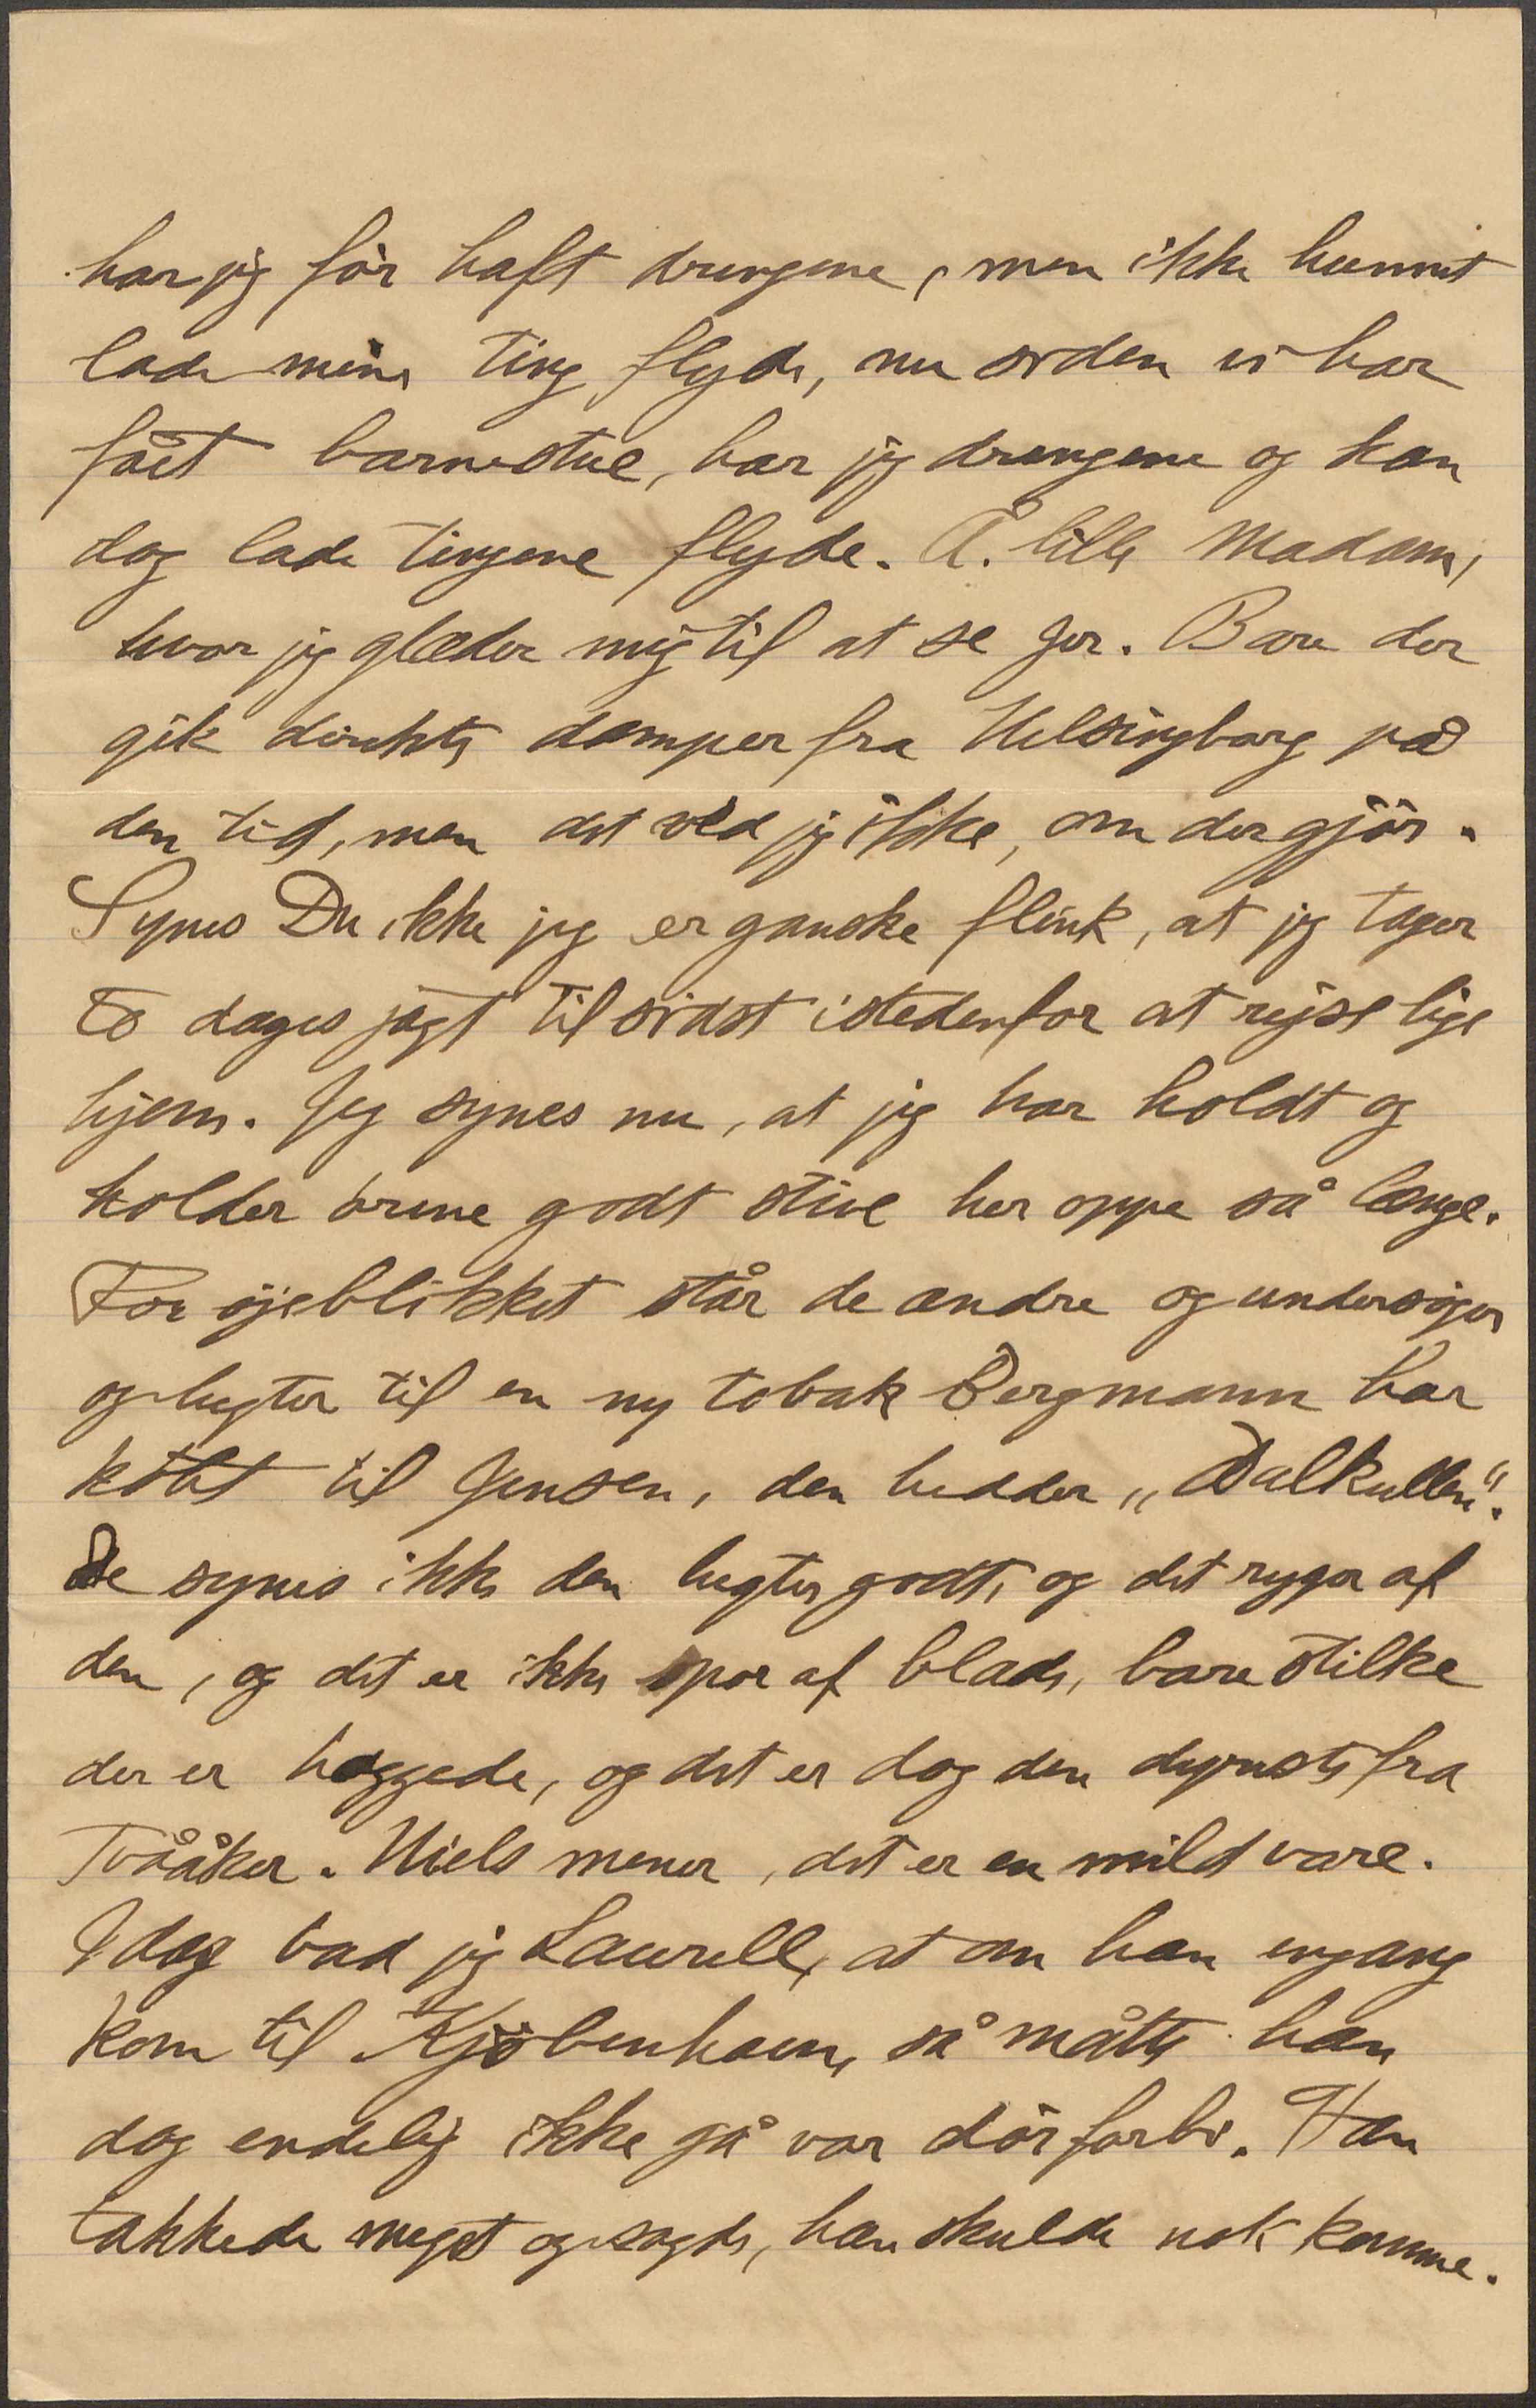 har jeg för haft drengene, men ikke kunnet
lade mine ting flyde, nu siden vi har
fået barnestue, har jeg drengene og kan
dog lade tingene flyde. Å. lille Madam,
hvor jeg glæder mig til at se Jer. Bare der
gik direkte damper fra Helsingborg på
den tid, men det ved jeg ikke, om der gjör.
Synes Du ikke jeg er ganske flink, at jeg tager
to dages jagt til sidst istedenfor at rejse lige
hjem. Jeg synes nu, at jeg har holdt og
holder örene godt stive her oppe så længe.
For öjeblikket står de andre og undersöger
og lugter til en ny tobak Bergmann har
köbt til Jensen, den hedder „Dalkullen“.
De synes ikke den lugter godt, og det ryger af
den, og det er ikke spor af blade, bare stilke
der er hoggede, og det er dog den dyreste fra
Tvååker. Niels mener, det er en mild vare.
Idag bad jeg Laurell, at om han engang
kom til Kjöbenhavn, så måtte han
dog endelig ikke gå vor dör forbi. Han
takkede meget og sagde, han skulde nok komme.